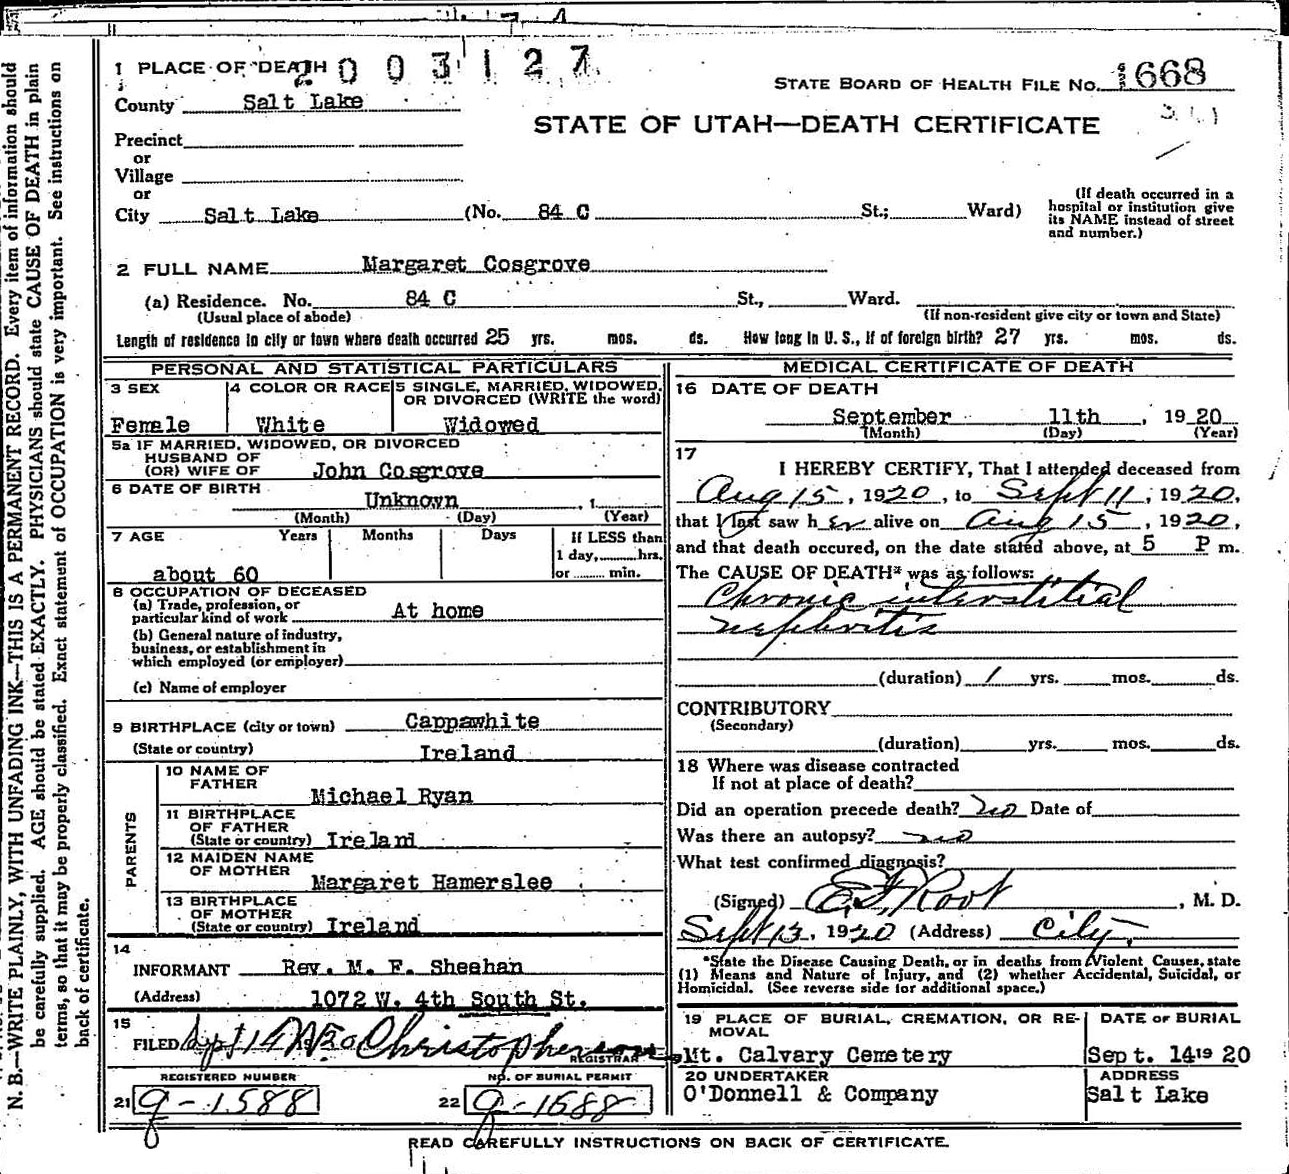 2003127
1 PLACE OF DEATH
STATE BOARD OF HEALTH FILE No. 1668
County Salt Lake
STATE OF UTAH—DEATH CERTIFICATE
Precinct
or
Village
or
City Salt Lake (No. 84 C St.; Ward)
(If death occurred in a hospital or institution give its NAME instead of street and number.)
2 FULL NAME Margaret Cosgrove
(a) Residence. No. 84 C St., Ward.
(Usual place of abode) (If non-resident give city or town and State)
Length of residence in city or town where death occurred 25 yrs. mos. ds. How long in U. S., if of foreign birth? 27 yrs. mos. ds.
PERSONAL AND STATISTICAL PARTICULARS
3 SEX
Female
4 COLOR OR RACE
White
5 SINGLE, MARRIED, WIDOWED,
OR DIVORCED (WRITE the word)
Widowed
5a IF MARRIED, WIDOWED, OR DIVORCED
HUSBAND OF
(OR) WIFE OF John Cosgrove
6 DATE OF BIRTH
Unknown , 1
(Month) (Day) (Year)
7 AGE Years Months Days
about 60
If LESS than
1 day, hrs.
or min.
8 OCCUPATION OF DECEASED
(a) Trade, profession, or
particular kind of work At home
(b) General nature of industry,
business, or establishment in
which employed (or employer)
(c) Name of employer
9 BIRTHPLACE (city or town) Cappawhite
(State or country) Ireland
PARENTS
10 NAME OF
FATHER
Michael Ryan
11 BIRTHPLACE
OF FATHER
(State or country) Ireland
12 MAIDEN NAME
OF MOTHER
Margaret Hamerslee
13 BIRTHPLACE
OF MOTHER
(State or country) Ireland
14
INFORMANT Rev. M. F. Sheehan
(Address) 1072 W. 4th South St.
15
FILED Sept 14 1920 Christopherson
REGISTRAR
REGISTERED NUMBER
21 9-1588
NO. OF BURIAL PERMIT
22 9-1588
MEDICAL CERTIFICATE OF DEATH
16 DATE OF DEATH
September 11th , 1920
(Month) (Day) (Year)
17
I HEREBY CERTIFY, That I attended deceased from
Aug 15, 1920, to Sept 11, 1920,
that I last saw her alive on Aug 15, 1920,
and that death occured, on the date stated above, at 5 P m.
The CAUSE OF DEATH* was as follows:
Chronic interstitial
nephritis
(duration) 1 yrs. mos. ds.
CONTRIBUTORY
(Secondary)
(duration) yrs. mos. ds.
18 Where was disease contracted
If not at place of death?
Did an operation precede death? no Date of
Was there an autopsy? no
What test confirmed diagnosis?
(Signed) E. F. Root , M. D.
Sept 13, 1920 (Address) City.
*State the Disease Causing Death, or in deaths from Violent Causes, state
(1) Means and Nature of Injury, and (2) whether Accidental, Suicidal, or
Homicidal. (See reverse side for additional space.)
19 PLACE OF BURIAL, CREMATION, OR RE-
MOVAL
Mt. Calvary Cemetery
DATE OF BURIAL
Sept. 14 19 20
20 UNDERTAKER
O'Donnell & Company
ADDRESS
Salt Lake
READ CAREFULLY INSTRUCTIONS ON BACK OF CERTIFICATE.
N. B.—WRITE PLAINLY, WITH UNFADING INK—THIS IS A PERMANENT RECORD. Every item of information should
be carefully supplied. AGE should be stated EXACTLY. PHYSICIANS should state CAUSE OF DEATH in plain
terms, so that it may be properly classified. Exact statement of OCCUPATION is very important. See instructions on
back of certificate.